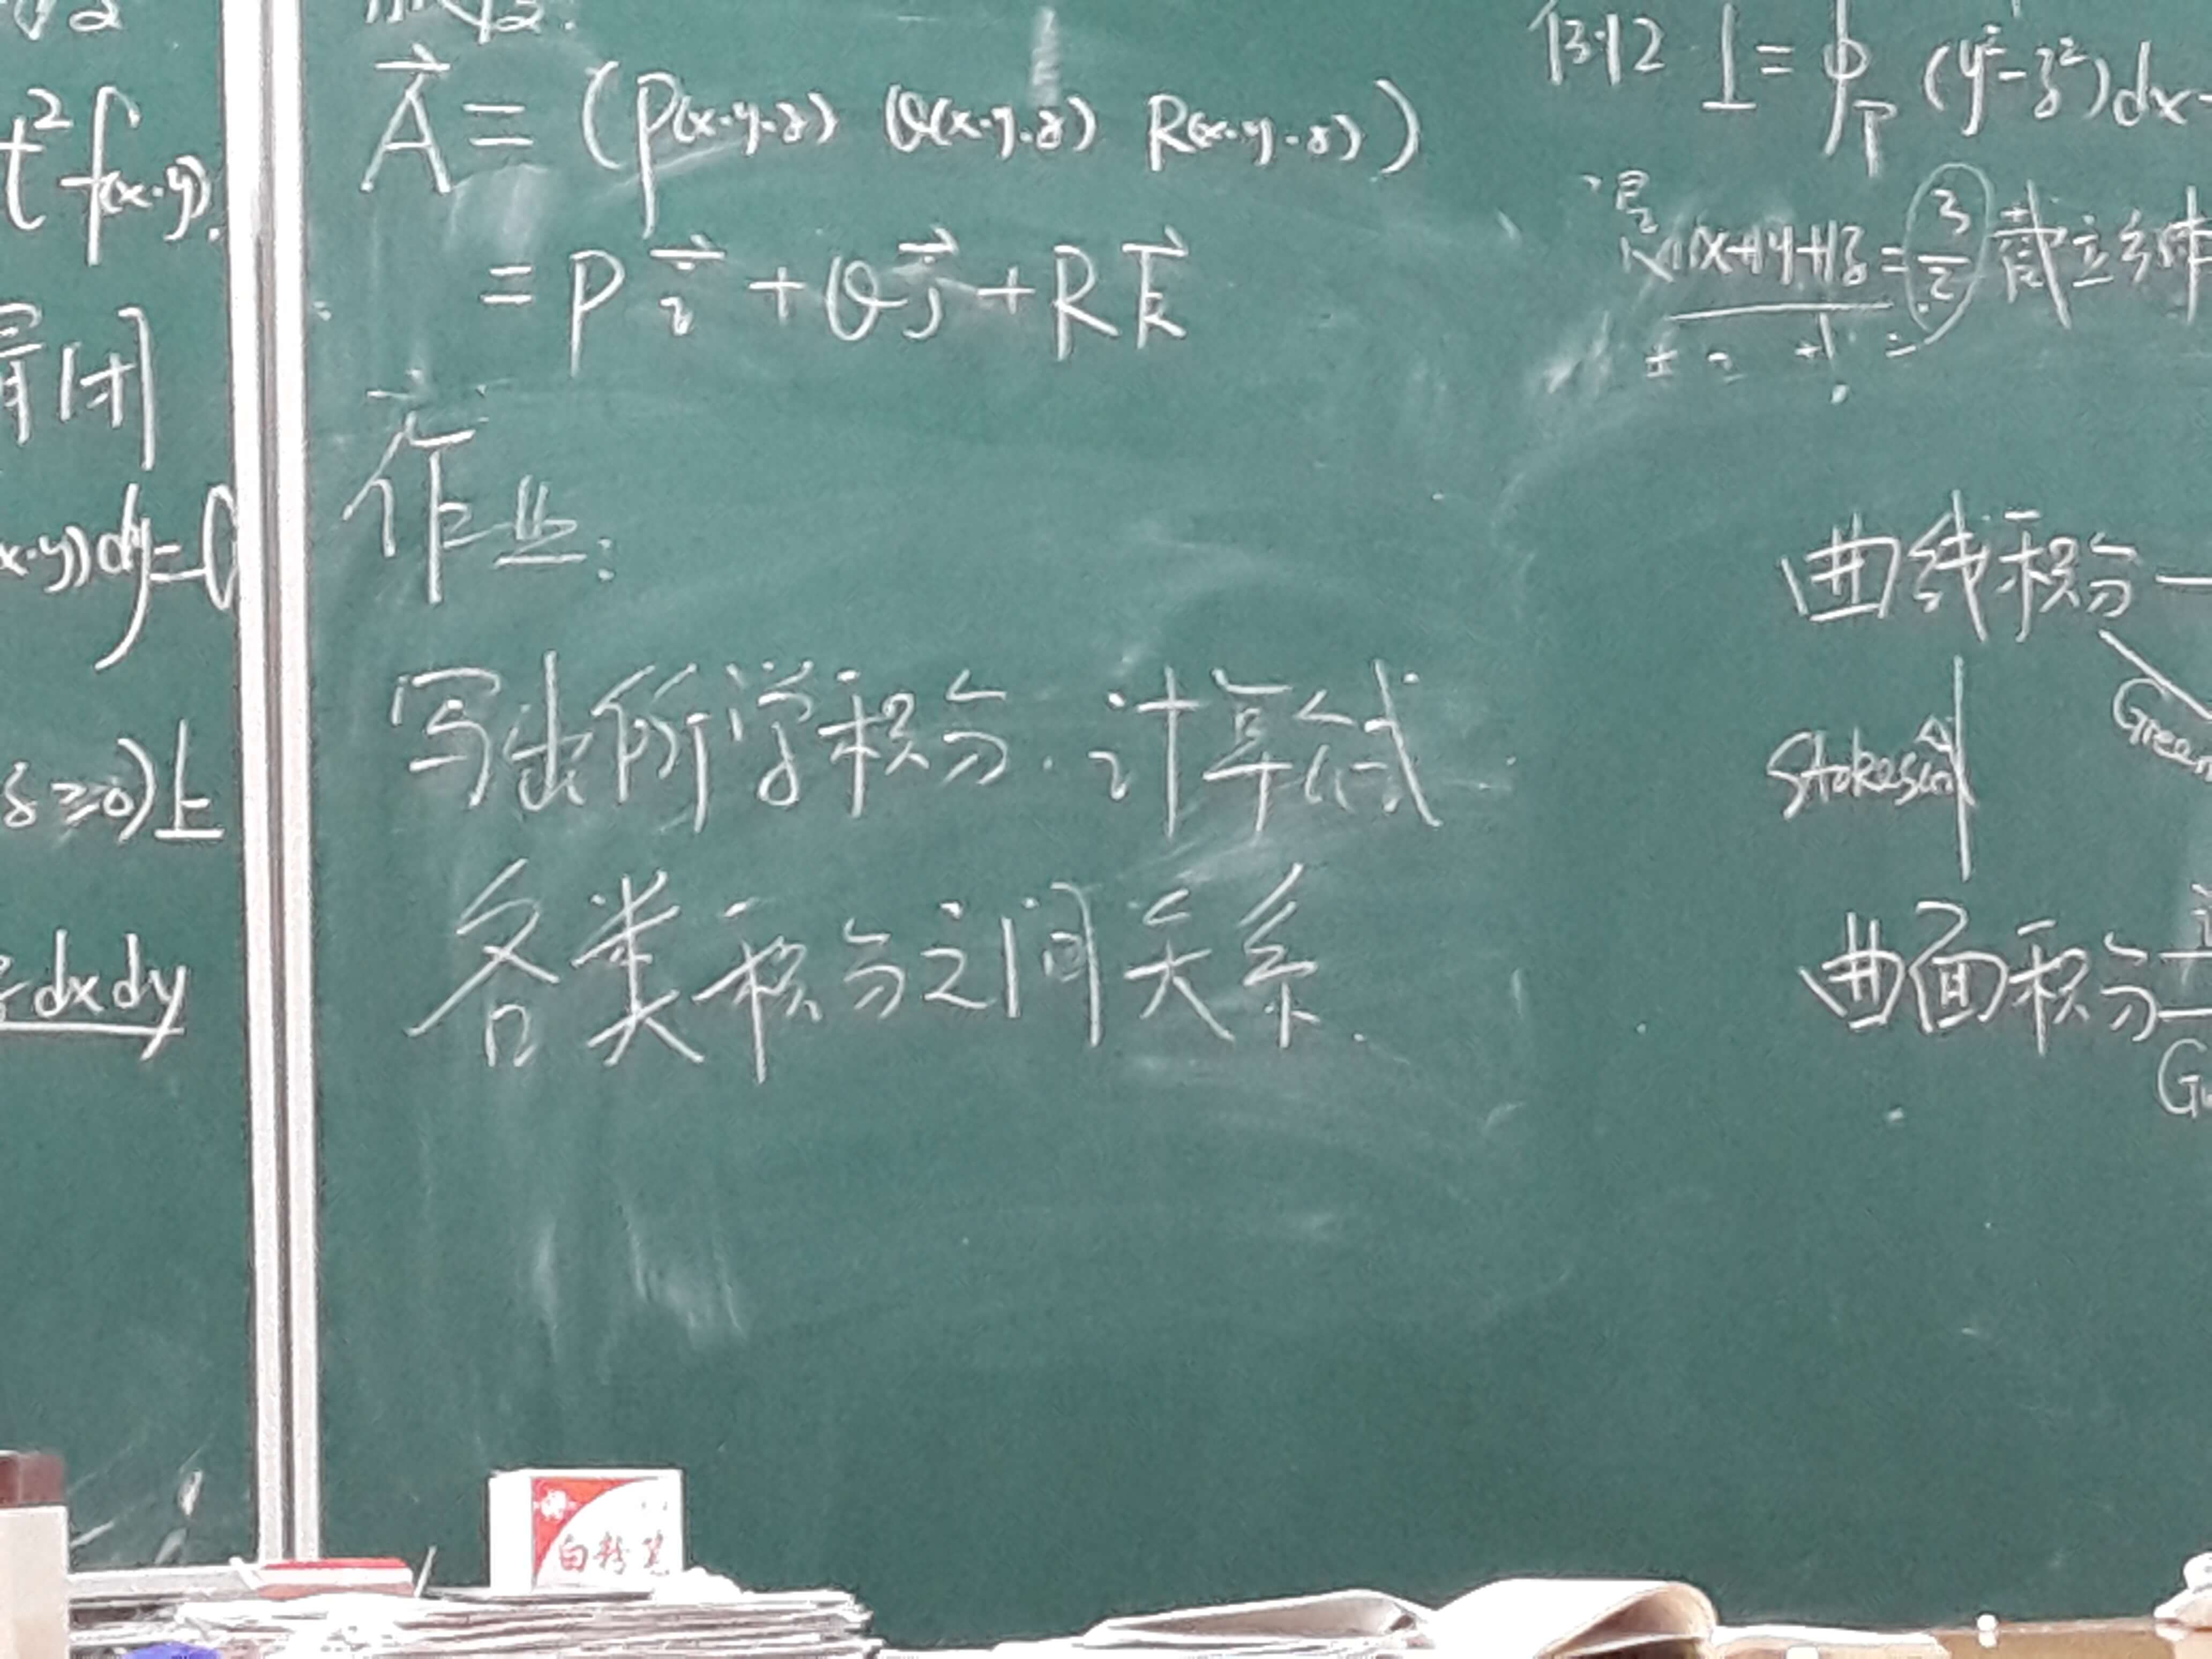 t² f(x·y).
x·y))dy=0
z≥0)上
dxdy
A⃗ = (P(x·y·z) Q(x·y·z) R(x·y·z))
= P i⃗ + Q j⃗ + R k⃗
作业:
写出所学积分.计算公式
各类积分之间关系.
例12 I = ∮Γ (y²-z²)dx
x+y+z = 3/2 截立方体
曲线积分
Green
Stokes公式
曲面积分
G
白粉笔